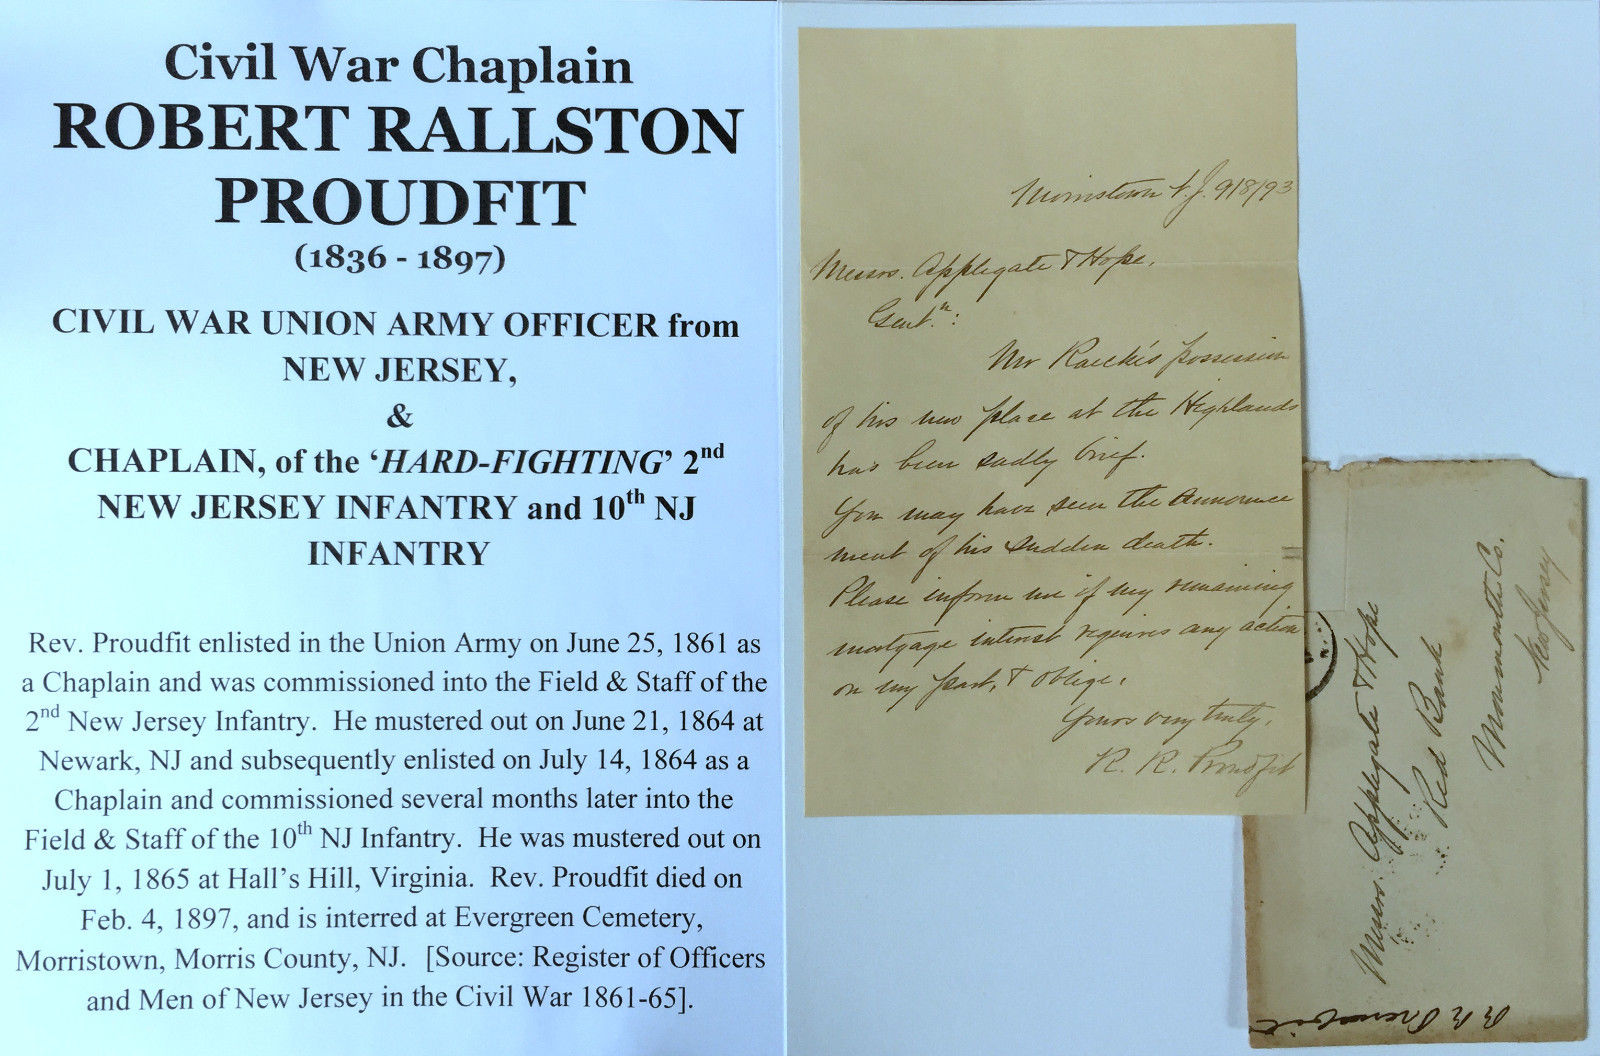 Civil War Chaplain
ROBERT RALLSTON
PROUDFIT
(1836 - 1897)
CIVIL WAR UNION ARMY OFFICER from
NEW JERSEY,
&
CHAPLAIN, of the ‘HARD-FIGHTING’ 2nd
NEW JERSEY INFANTRY and 10th NJ
INFANTRY
Rev. Proudfit enlisted in the Union Army on June 25, 1861 as
a Chaplain and was commissioned into the Field & Staff of the
2nd New Jersey Infantry. He mustered out on June 21, 1864 at
Newark, NJ and subsequently enlisted on July 14, 1864 as a
Chaplain and commissioned several months later into the
Field & Staff of the 10th NJ Infantry. He was mustered out on
July 1, 1865 at Hall’s Hill, Virginia. Rev. Proudfit died on
Feb. 4, 1897, and is interred at Evergreen Cemetery,
Morristown, Morris County, NJ. [Source: Register of Officers
and Men of New Jersey in the Civil War 1861-65].
Morristown N.J. 9/8/93
Messrs. Applegate & Hope.
Gentn:
Mr possession
of his new place at the Highlands
has been sadly brief.
You may have seen the announce
ment of his sudden death.
Please inform me if my remaining
mortgage interest requires any action
on my part, & oblige,
Yours very truly,
R. R. Proudfit
Messrs. Applegate & Hope
Red Bank
Monmouth Co.
New Jersey
R R Proudfit